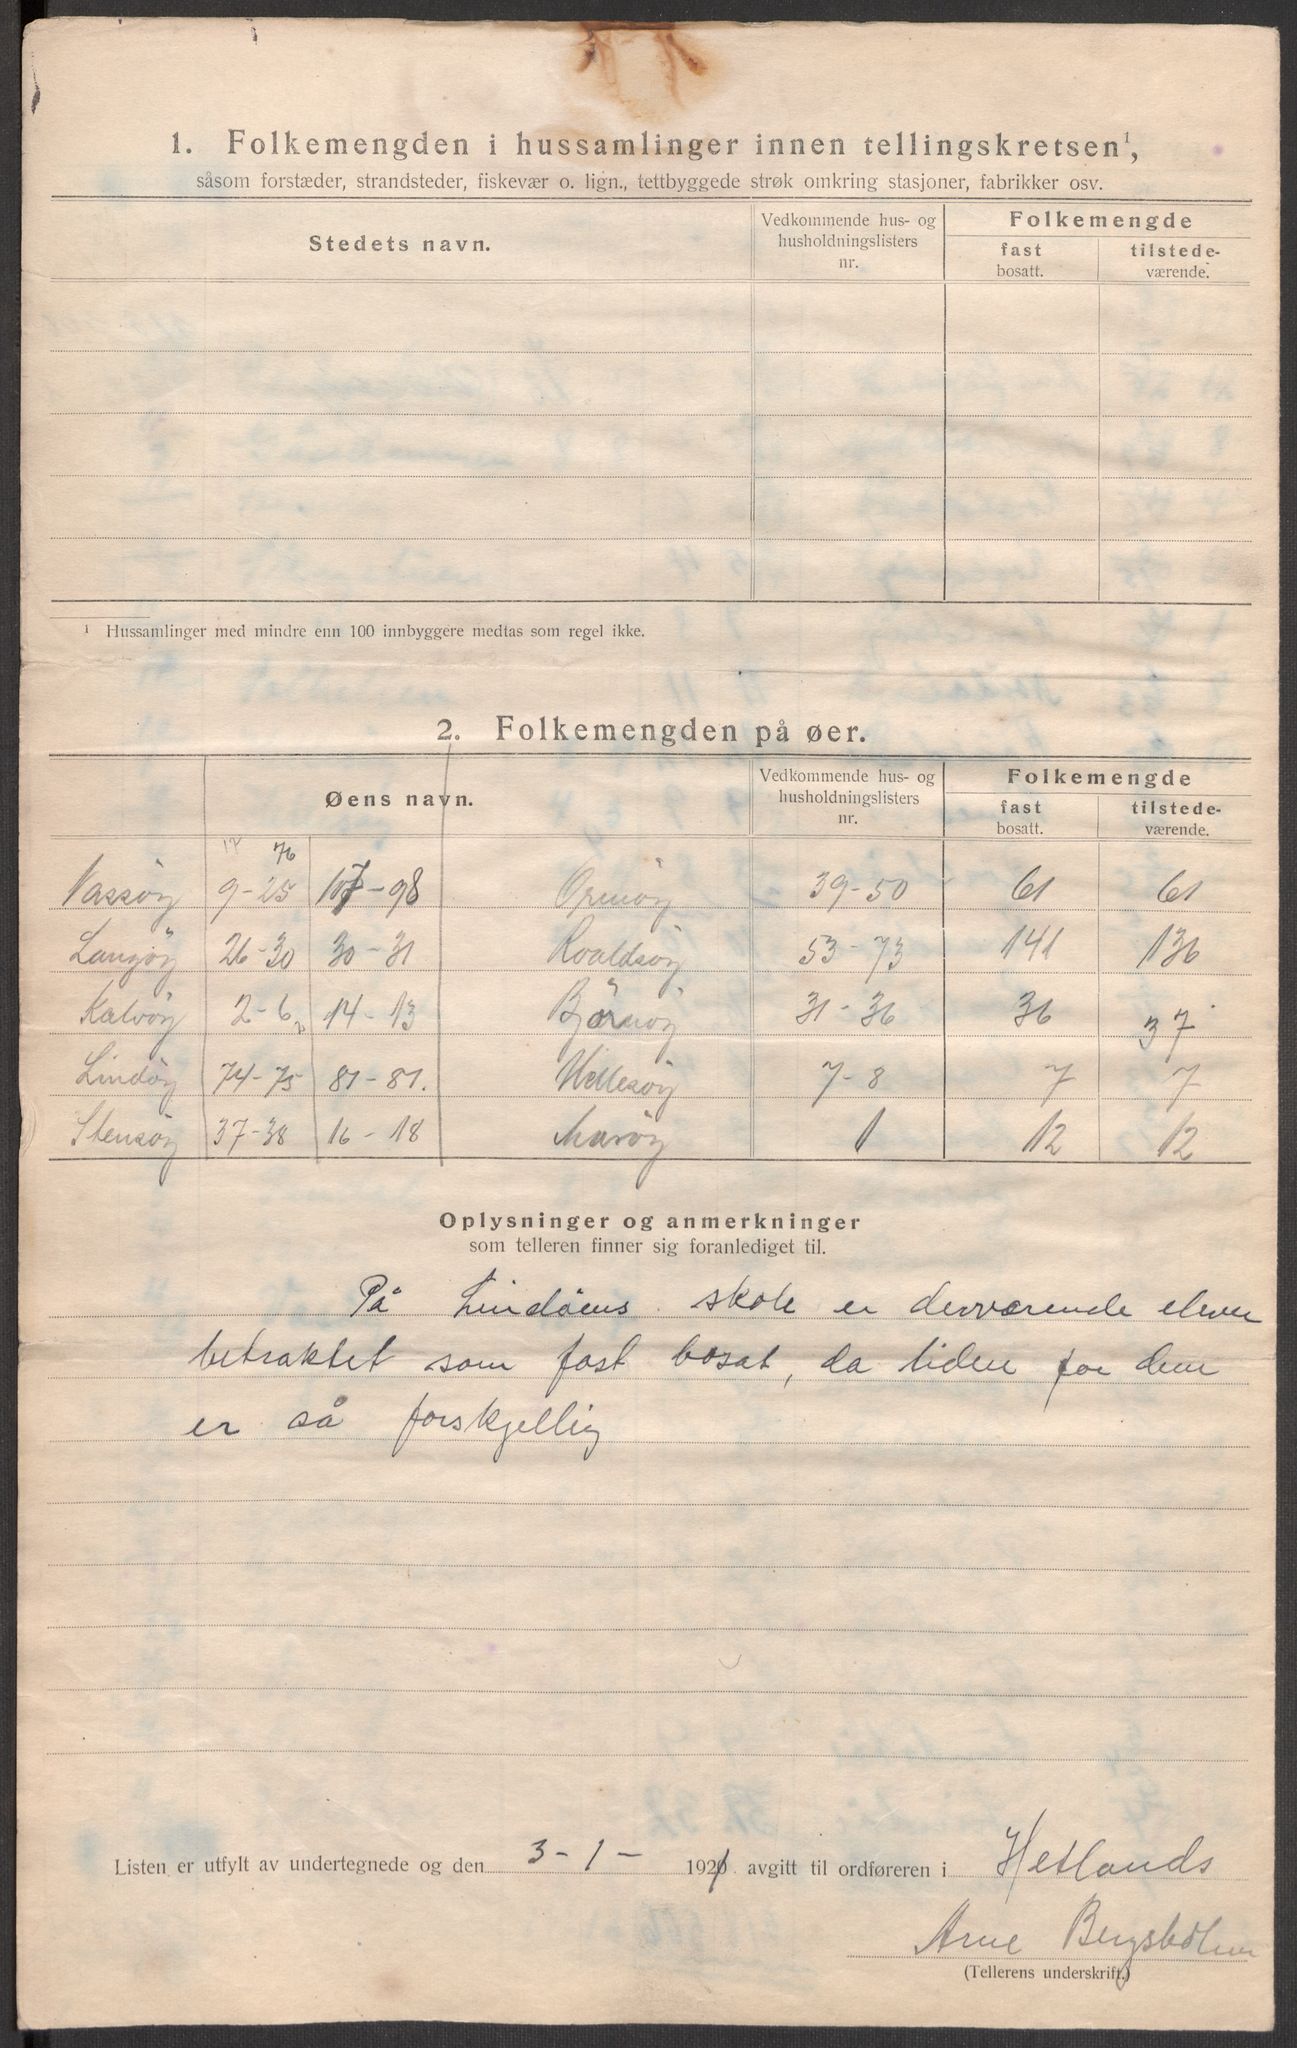 1. Folkemengden i hussamlinger innen tellingskretsen¹,
såsom forstæder, strandsteder, fiskevær o. lign., tettbyggede strøk omkring stasjoner, fabrikker osv.
Stedets navn.
Vedkommende hus- og
husholdningslisters
nr.
Folkemengde
fast
bosatt.
tilstede-
værende.
¹ Hussamlinger med mindre enn 100 innbyggere medtas som regel ikke.
2. Folkemengden på øer.
Øens navn.
Vedkommende hus- og
husholdningslisters
nr.
Folkemengde
fast
bosatt.
tilstede-
værende.
76
Vassöy 9-25 107-98 Ormöy 39-50 61 61
Langöy 26-30 30-31 Roaldsöy 53-73 141 136
Kalvöy 2-6 14-13 Bjørnöy 31-36 36 37
Lindöy 74-75 81-81. Hellesöy 7-8 7 7
Stensöy 37-38 16-18 Maröy 1 12 12
Oplysninger og anmerkninger
som telleren finner sig foranlediget til.
På Lindöens skole er derværende elever
betraktet som fast bosat, da tiden for dem
er så forskjellig
Listen er utfylt av undertegnede og den 3-1- 1921 avgitt til ordføreren i Hetlands
Arne Bergsholm
(Tellerens underskrift.)